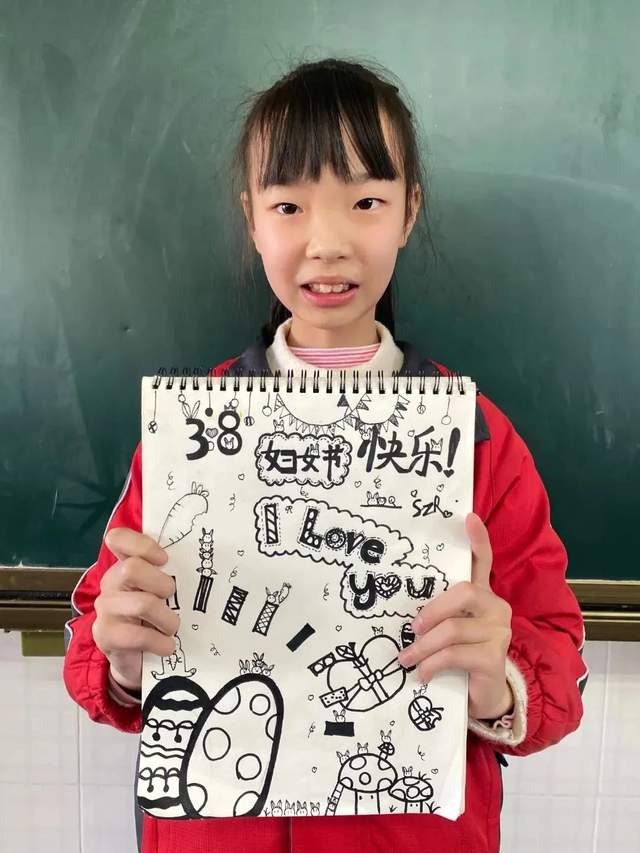 3.8
妇女节 快乐!
I Love
you